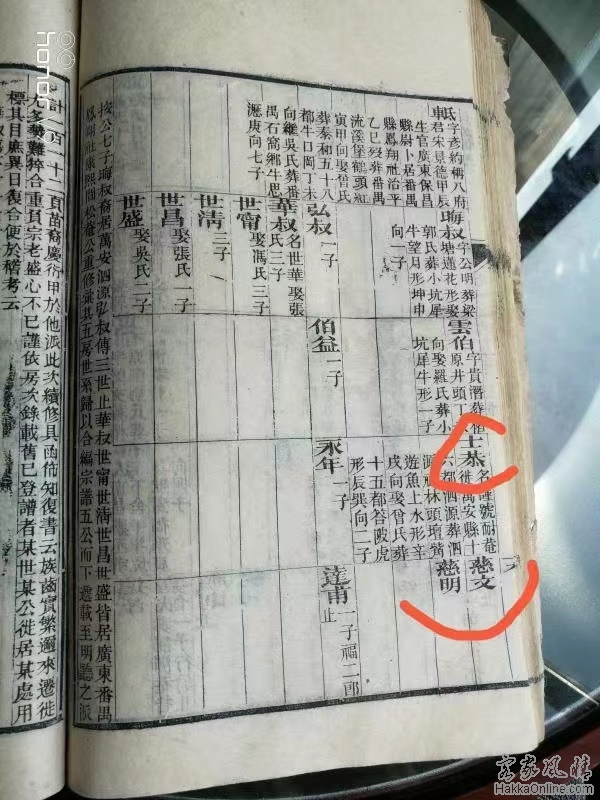 軝字彥約稱八府
君宋景德甲辰
生官廣東保昌
縣尉卜居番禺
縣鳳翔社治平
乙巳歿葬番禺
流溪堡鶴頭紅
寅甲向娶曾氏
葬泰和五十八
都牛口岡丁未
向繼吳氏葬番
禺石窩鄉牛思
庚向七子
晦叔字公明葬梁
坤蓮花形娶
郭氏葬小坑犀
牛望月形坤申
向一子
弘叔一子
華叔名世華娶張
氏三子
世甯娶馮氏三子
世清三子
世昌娶張氏一子
世盛娶吳氏二子
雲伯字貴潛葬
原井頭丁
向娶羅氏葬小
坑犀牛形一子
伯益一子
士恭名 號耐菴
徙萬安縣十
六都泗源葬泗
源 林頭壇黃
遊魚上水形辛
戌向娶曾氏葬
十五都荅陂虎
形辰巽向二子
永年一子
慈文
慈明
達甫一子福二郎
止
按公七子晦叔裔居萬安泗源弘叔傳三世止華叔世甯世清世昌世盛皆居廣東番禺
鳳翔社康熙間松菴公重修彙其五房世系歸以合編宗譜五公而下遞載至明聽之派
計一百一十二頁苗裔慶衍甲於他派此次續修具函徇知復書云族齒實繁邇來遷徙
尤多勢難猝合重負宗老盛心不已謹依房次錄載舊已登譜者某世某公徙居某處用
標其目庶異日復合便於稽考云
honor
客家風情
HakkaOnline.com